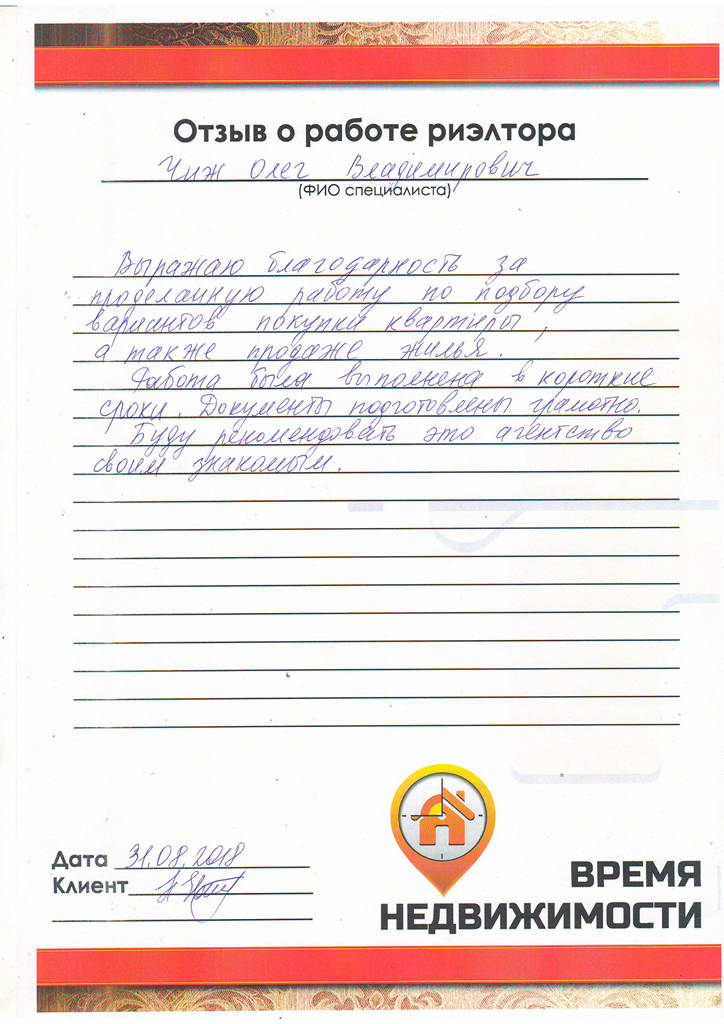 Отзыв о работе риэлтора
Чиж Олег Владимирович
(ФИО специалиста)
Выражаю благодарность за
проделанную работу по подбору
вариантов покупки квартиры,
а также продаже жилья.
Работа была выполнена в короткие
сроки. Документы подготовлены грамотно.
Буду рекомендовать это агентство
своим знакомым.
Дата 31.08.2018
Клиент
ВРЕМЯ
НЕДВИЖИМОСТИ